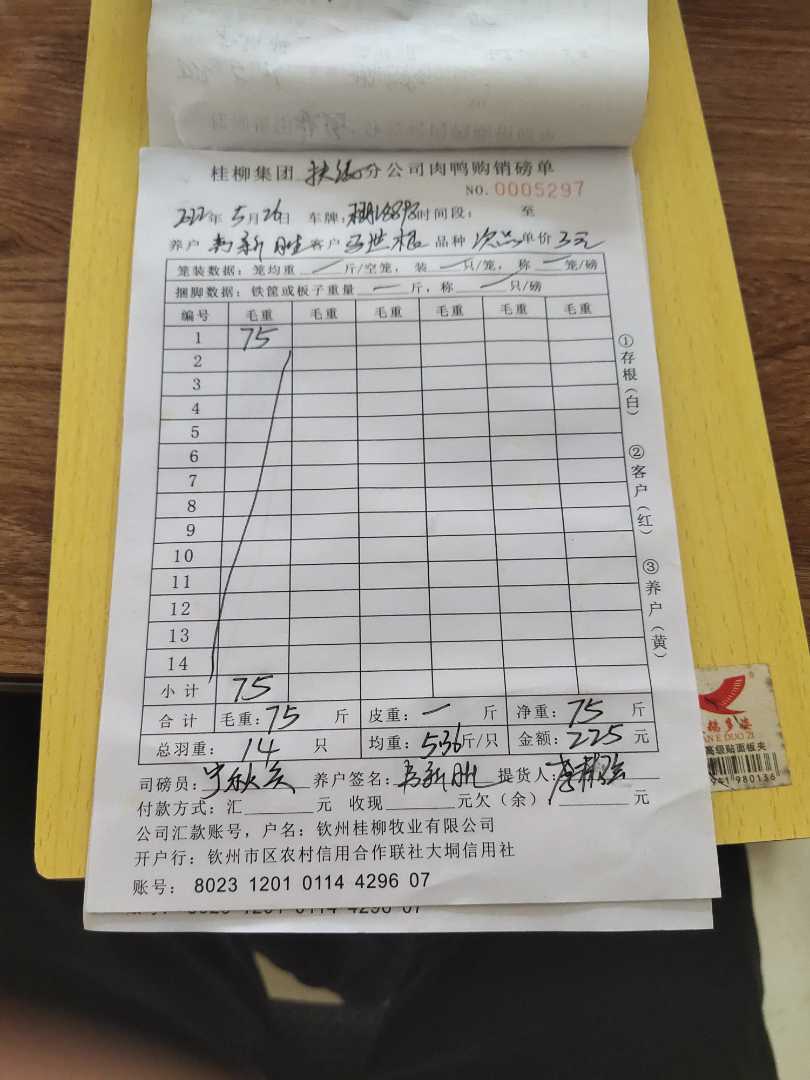 桂柳集团 扶绥 分公司肉鸭购销磅单
NO. 0005297
2022年5月26日 车牌: 时间段: 至
养户 韦新胜 客户 品种 次品 单价 3元
笼装数据: 笼均重 一 斤/空笼, 装 一 只/笼, 称 一 笼/磅
捆脚数据: 铁筐或板子重量 一 斤, 称 一 只/磅
编号 毛重 毛重 毛重 毛重 毛重 毛重
1 75
2
3
4
5
6
7
8
9
10
11
12
13
14
小计 75
合计 毛重: 75 斤 皮重: 一 斤 净重: 75 斤
总羽重: 14 只 均重: 5.36 斤/只 金额: 225 元
司磅员: 养户签名: 韦新胜 提货人:
付款方式: 汇 元 收现 元欠(余) 元
公司汇款账号, 户名: 钦州桂柳牧业有限公司
开户行: 钦州市区农村信用合作联社大垌信用社
账号: 8023 1201 0114 4296 07
①存根(白)
②客户(红)
③养户(黄)
高级贴面板夹